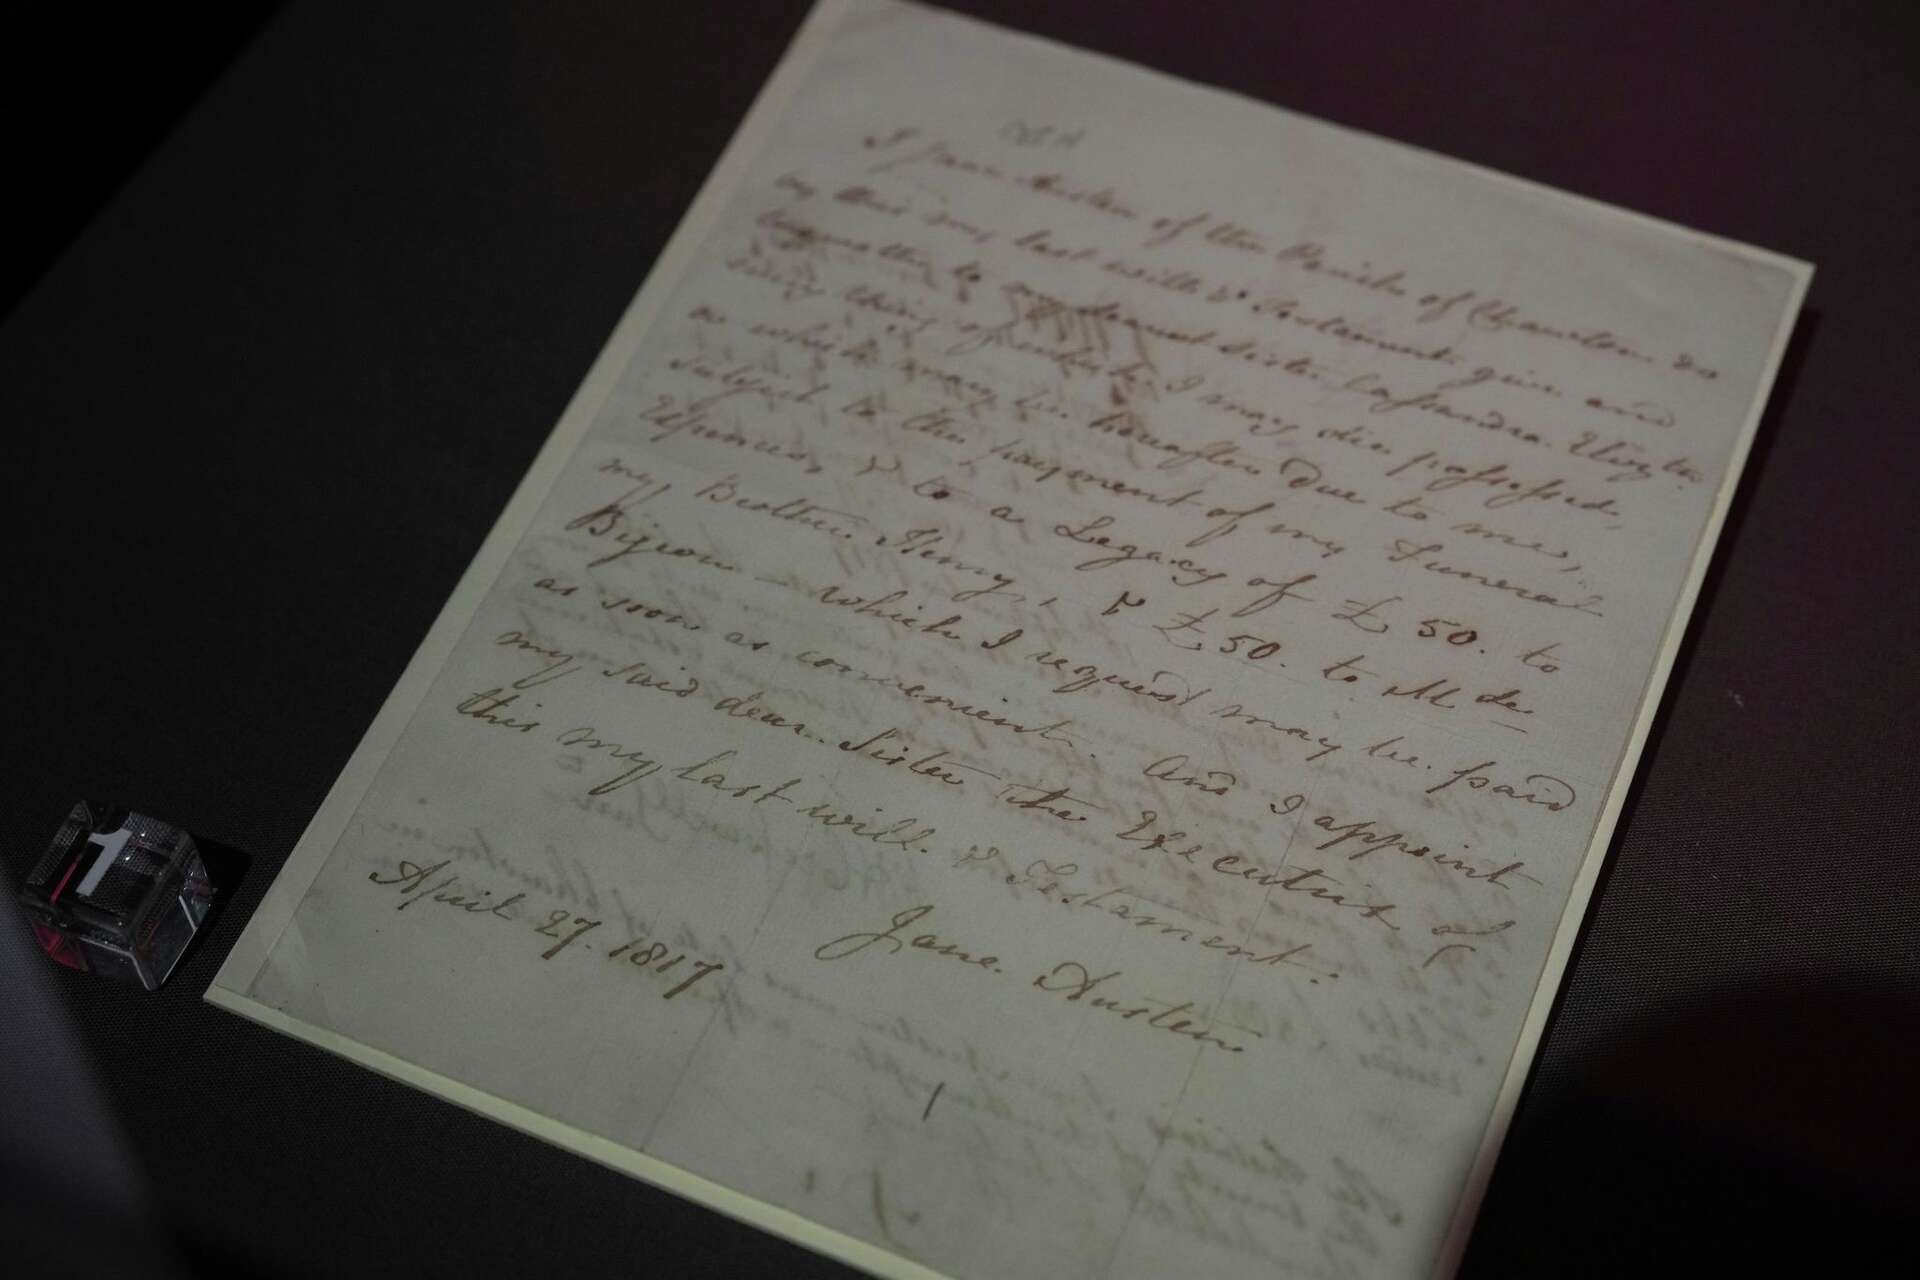 I Jane Austen of the Parish of Chawton do
by this my last will & Testament give and
bequeathe to my dearest Sister Cassandra Elizth
every thing of which I may die possessed,
or which may be hereafter due to me,
subject to the payment of my Funeral
Expences, & to a Legacy of £50. to
my Brother Henry, & £50. to M de
Bigeon - which I request may be paid
as soon as convenient. And I appoint
my said dear Sister the Executrix of
this my last will. & Testament.
Jane Austen
April 27. 1817
1